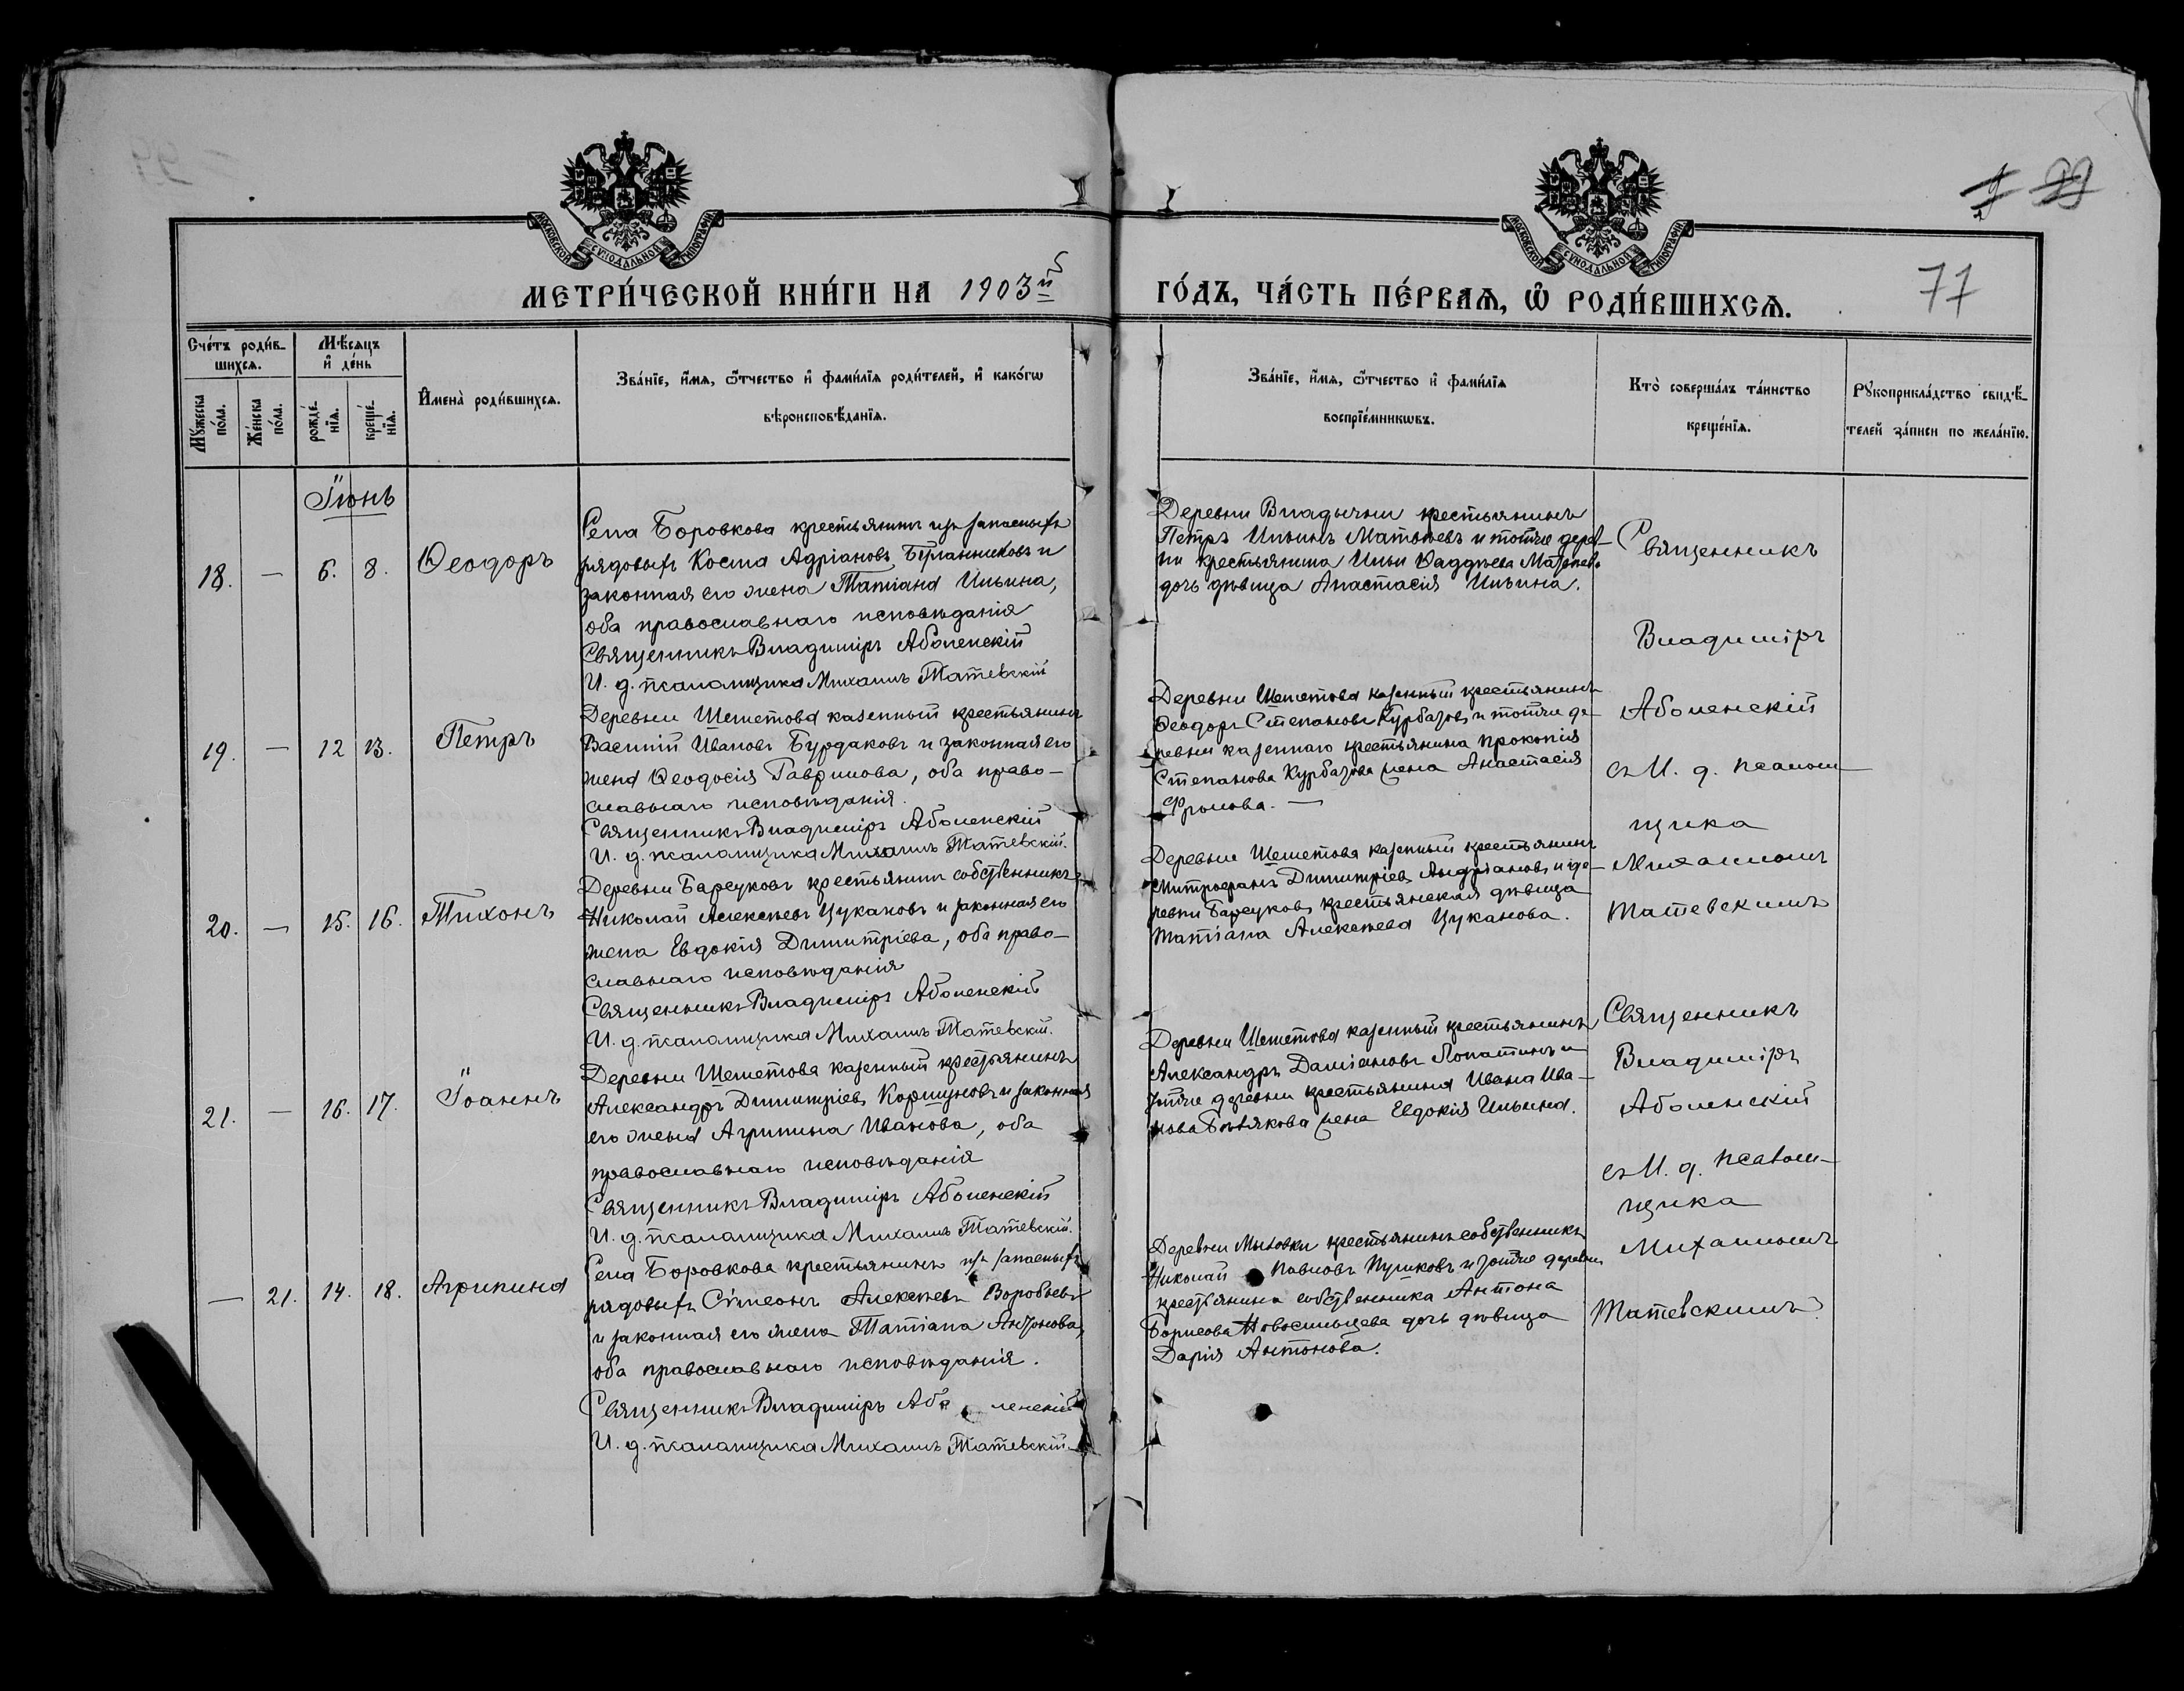 99
МОСКОВСКОЙ СУНОДАЛЬНОЙ ТИПОГРАФІИ
МОСКОВСКОЙ СУНОДАЛЬНОЙ ТИПОГРАФІИ
77
МЕТРИ́ЧЕСКОЙ КНИ́ГИ НА 1903й
ГО́ДЪ, ЧА́СТЬ ПЕ́РВАѦ, Ѡ҆ РОДИ́ВШИХСѦ.
Сче́тъ роди́в-
шихсѧ.
Мꙋ́жеска
по́ла.
Же́нска
по́ла.
Мѣ́сяцъ
и҆ де́нь
рожде́-
нїѧ.
креще́-
нїѧ.
И҆мена̀ роди́вшихсѧ.
Зва́нїе, и҆́мѧ, ѻ҆́тчество и҆ фами́лїѧ роди́телей, и҆ како́гѡ
вѣроисповѣ́данїѧ.
Зва́нїе, и҆́мѧ, ѻ҆́тчество и҆ фами́лїѧ
воспрїе́мникѡвъ.
Кто̀ соверша́лъ та́инство
креще́нїѧ.
Рꙋкоприкла́дство свидѣ́-
телей за́писи по жела́нїю.
Іюнь
18. — 6. 8. Ѳеодоръ
Села Боровкова крестьянинъ изъ запасныхъ
рядовыхъ Косма Адріановъ и
законная его жена Татіана Ильина,
оба православнаго исповѣданія
Священникъ Владиміръ Аболенскій
И. д. псаломщика Михаилъ Татевскій
Деревни Владычни крестьянинъ
Петръ Ильинъ Матвѣевъ и тойже дерев-
ни крестьянина Ильи Ѳаддѣева
дочь дѣвица Анастасія Ильина.
19. — 12 13. Петръ
Деревни Шеметова казенный крестьянинъ
Василій Ивановъ Бурдаковъ и законная его
жена Ѳеодосія Гаврилова, оба право-
славнаго исповѣданія.
Священникъ Владиміръ Аболенскій
И. д. псаломщика Михаилъ Татевскій.
Деревни Шеметова казенный крестьянинъ
Ѳеодоръ Степановъ Курбатовъ и тойже де-
ревни казеннаго крестьянина Прокопія
Степанова Курбатова жена Анастасія
Фролова. —
20. — 15. 16. Тихонъ
Деревни Барсуковъ крестьянинъ собственникъ
Николай Алексѣевъ Цукановъ и законная его
жена Евдокія Димитріева, оба право-
славнаго исповѣданія
Священникъ Владиміръ Аболенскій
И. д. псаломщика Михаилъ Татевскій.
Деревни Шеметова казенный крестьянинъ
Митрофанъ Димитріевъ Андріановъ и де-
ревни Барсуковъ крестьянская дѣвица
Татіана Алексѣева Цуканова.
21. — 16. 17. Іоаннъ
Деревни Шеметова казенный крестьянинъ
Александръ Димитріевъ Коршуновъ и законная
его жена Агрипина Иванова, оба
православнаго исповѣданія
Священникъ Владиміръ Аболенскій
И. д. псаломщика Михаилъ Татевскій.
Деревни Шеметова казенный крестьянинъ
Александръ Даміановъ Лопатинъ и
тойже деревни крестьянина Ивана Ива-
нова жена Евдокія Ильина.
— 21. 14. 18. Агрипина
Села Боровкова крестьянинъ изъ запасныхъ
рядовыхъ Сѵмеонъ Алексѣевъ Воробьевъ
и законная его жена Татіана Антонова,
оба православнаго исповѣданія.
Священникъ Владиміръ Аболенскій
И. д. псаломщика Михаилъ Татевскій
Деревни крестьянинъ собственникъ
Николай Павловъ Пушковъ и тойже деревни
крестьянина собственника Антона
Борисова Новосильцева дочь дѣвица
Дарія Антонова.
Священникъ
Владиміръ
Аболенскій
съ И. д. псалом-
щика
Михаиломъ
Татевскимъ
Священникъ
Владиміръ
Аболенскій
съ И. д. псалом-
щика
Михаиломъ
Татевскимъ